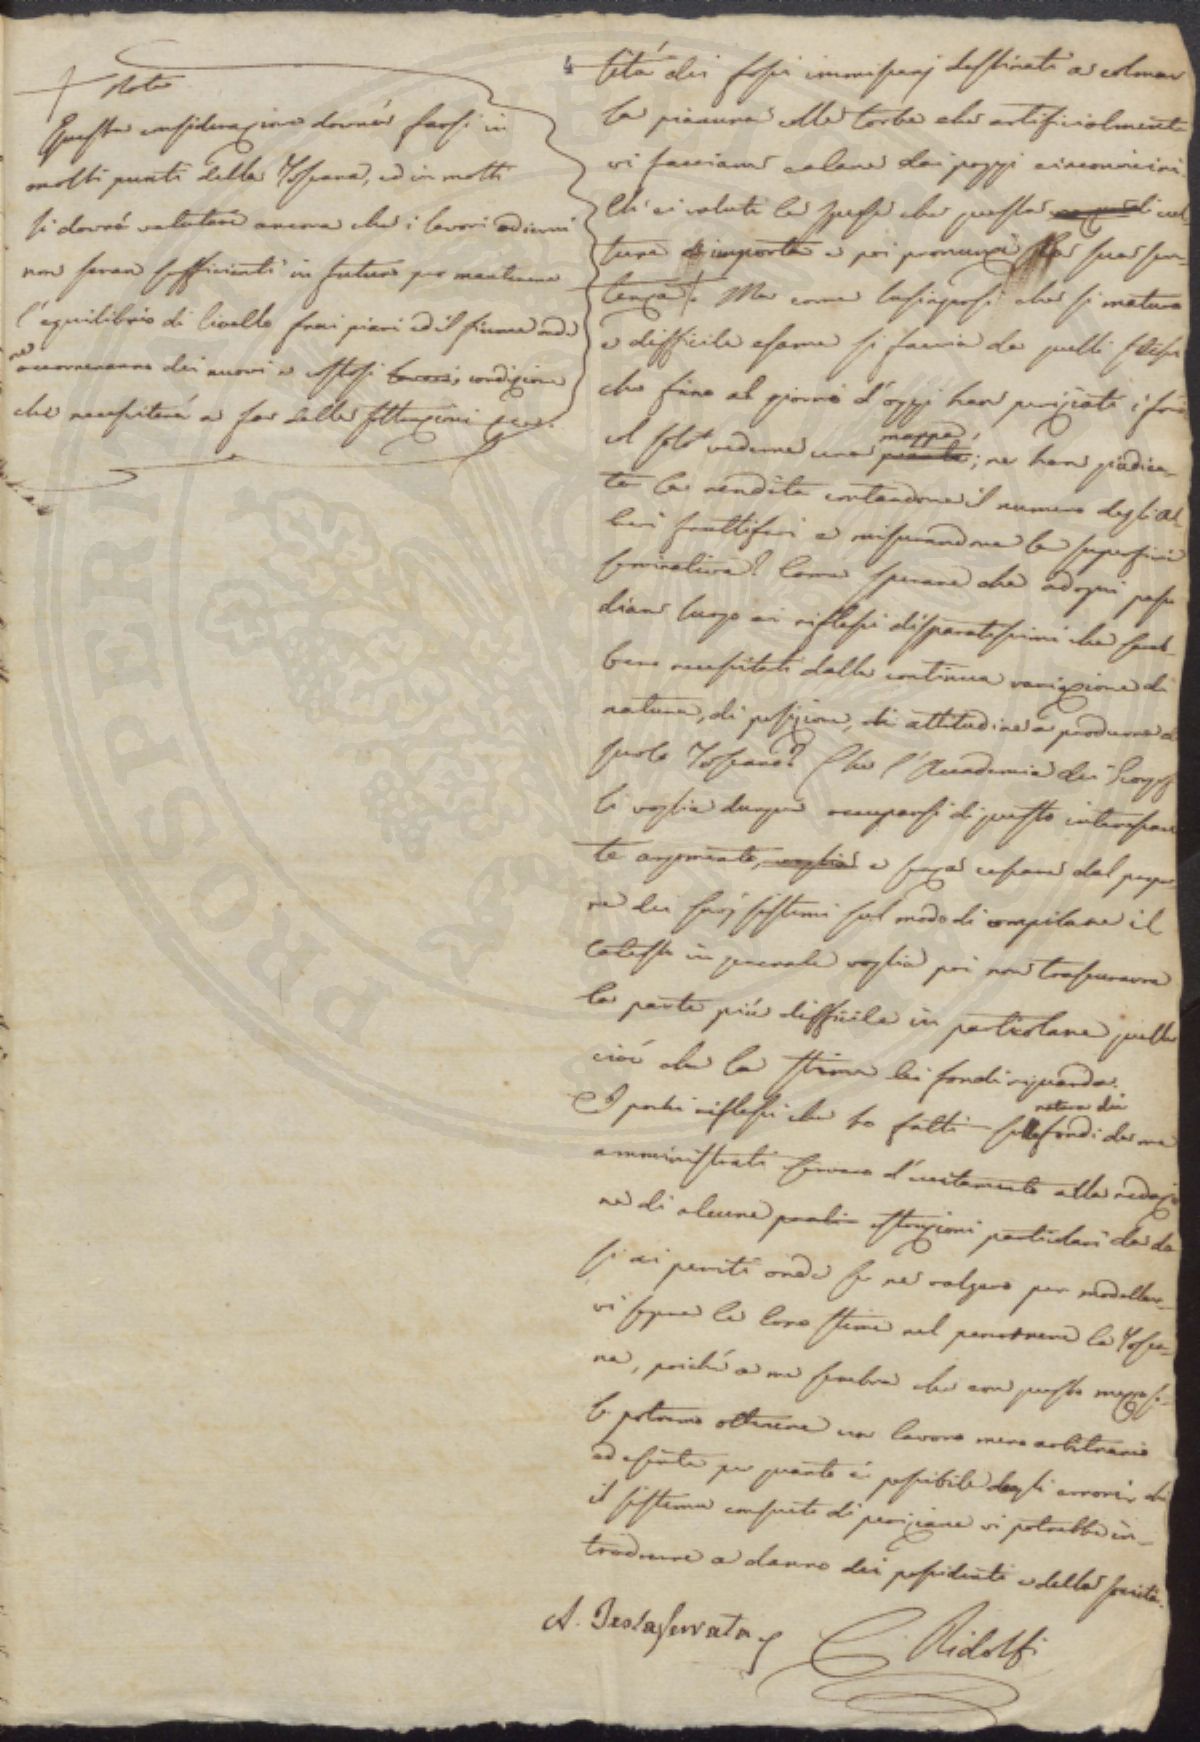 4
+ Nota
Questa considerazione dovrà farsi in
molti punti della Toscana, ed in molti
si dovrà valutare ancora che i lavori odierni
non saran sufficienti in futuro per mantenere
l'equilibrio di livello frai piani ed il fiume onde
ne occorreranno dei nuovi e costosi lavori, condizione
che necessiterà a far delle
tità dei fossi immissarj destinati a colmar
la pianura colle torbe che artificialmente
vi facciamo calare dai poggi circonvicini.
Chi ci valuti la spesa che questa di cul-
tura importa e poi pronunzi la sua sen-
tenza +. Ma come lusingarsi che sì maturo
e difficile esame si faccia da quelli stessi
che fino al giorno d'oggi han periziati i fondi
al solo vederne una pianta mappa; ne han giudica-
to la rendita contandone il numero degli al-
beri fruttiferi e misurandone la superficie
seminativa? Come sperare che ad ogni passo
dian luogo ai riflessi disparatissimi che sareb-
bero necessitati dalla continua variazione di
natura, di posizione, di attitudine a produrre del
suolo Toscano? Che l'Accademia dei Georgofi-
li voglia dunque occuparsi di questo interessan-
te argomento, voglia e senza cessare dal propor-
re dei suoj sistemi sul modo di compilare il
Catasto in generale voglia poi non trascurarne
la parte più difficile in particolare quella
cioè che la stima dei fondi riguarda.
I pochi riflessi che ho fatti sulla natura dei fondi da me
amministrati servano d'eccitamento alla redazio-
ne di alcune istruzioni particolari da da-
si ai periti onde se ne valgano per modellar-
vi sopra le loro stime nel percorrere la Tosca-
na, poichè a me sembra che con questo mezzo so-
lo potremo ottenere un lavoro meno arbitrario
ed esente per quanto è possibile dagli errori che
il sistema consueto di periziare vi potrebbe in-
trodurre a danno dei possidenti e della società.
A. Testaferrata
C. Ridolfi